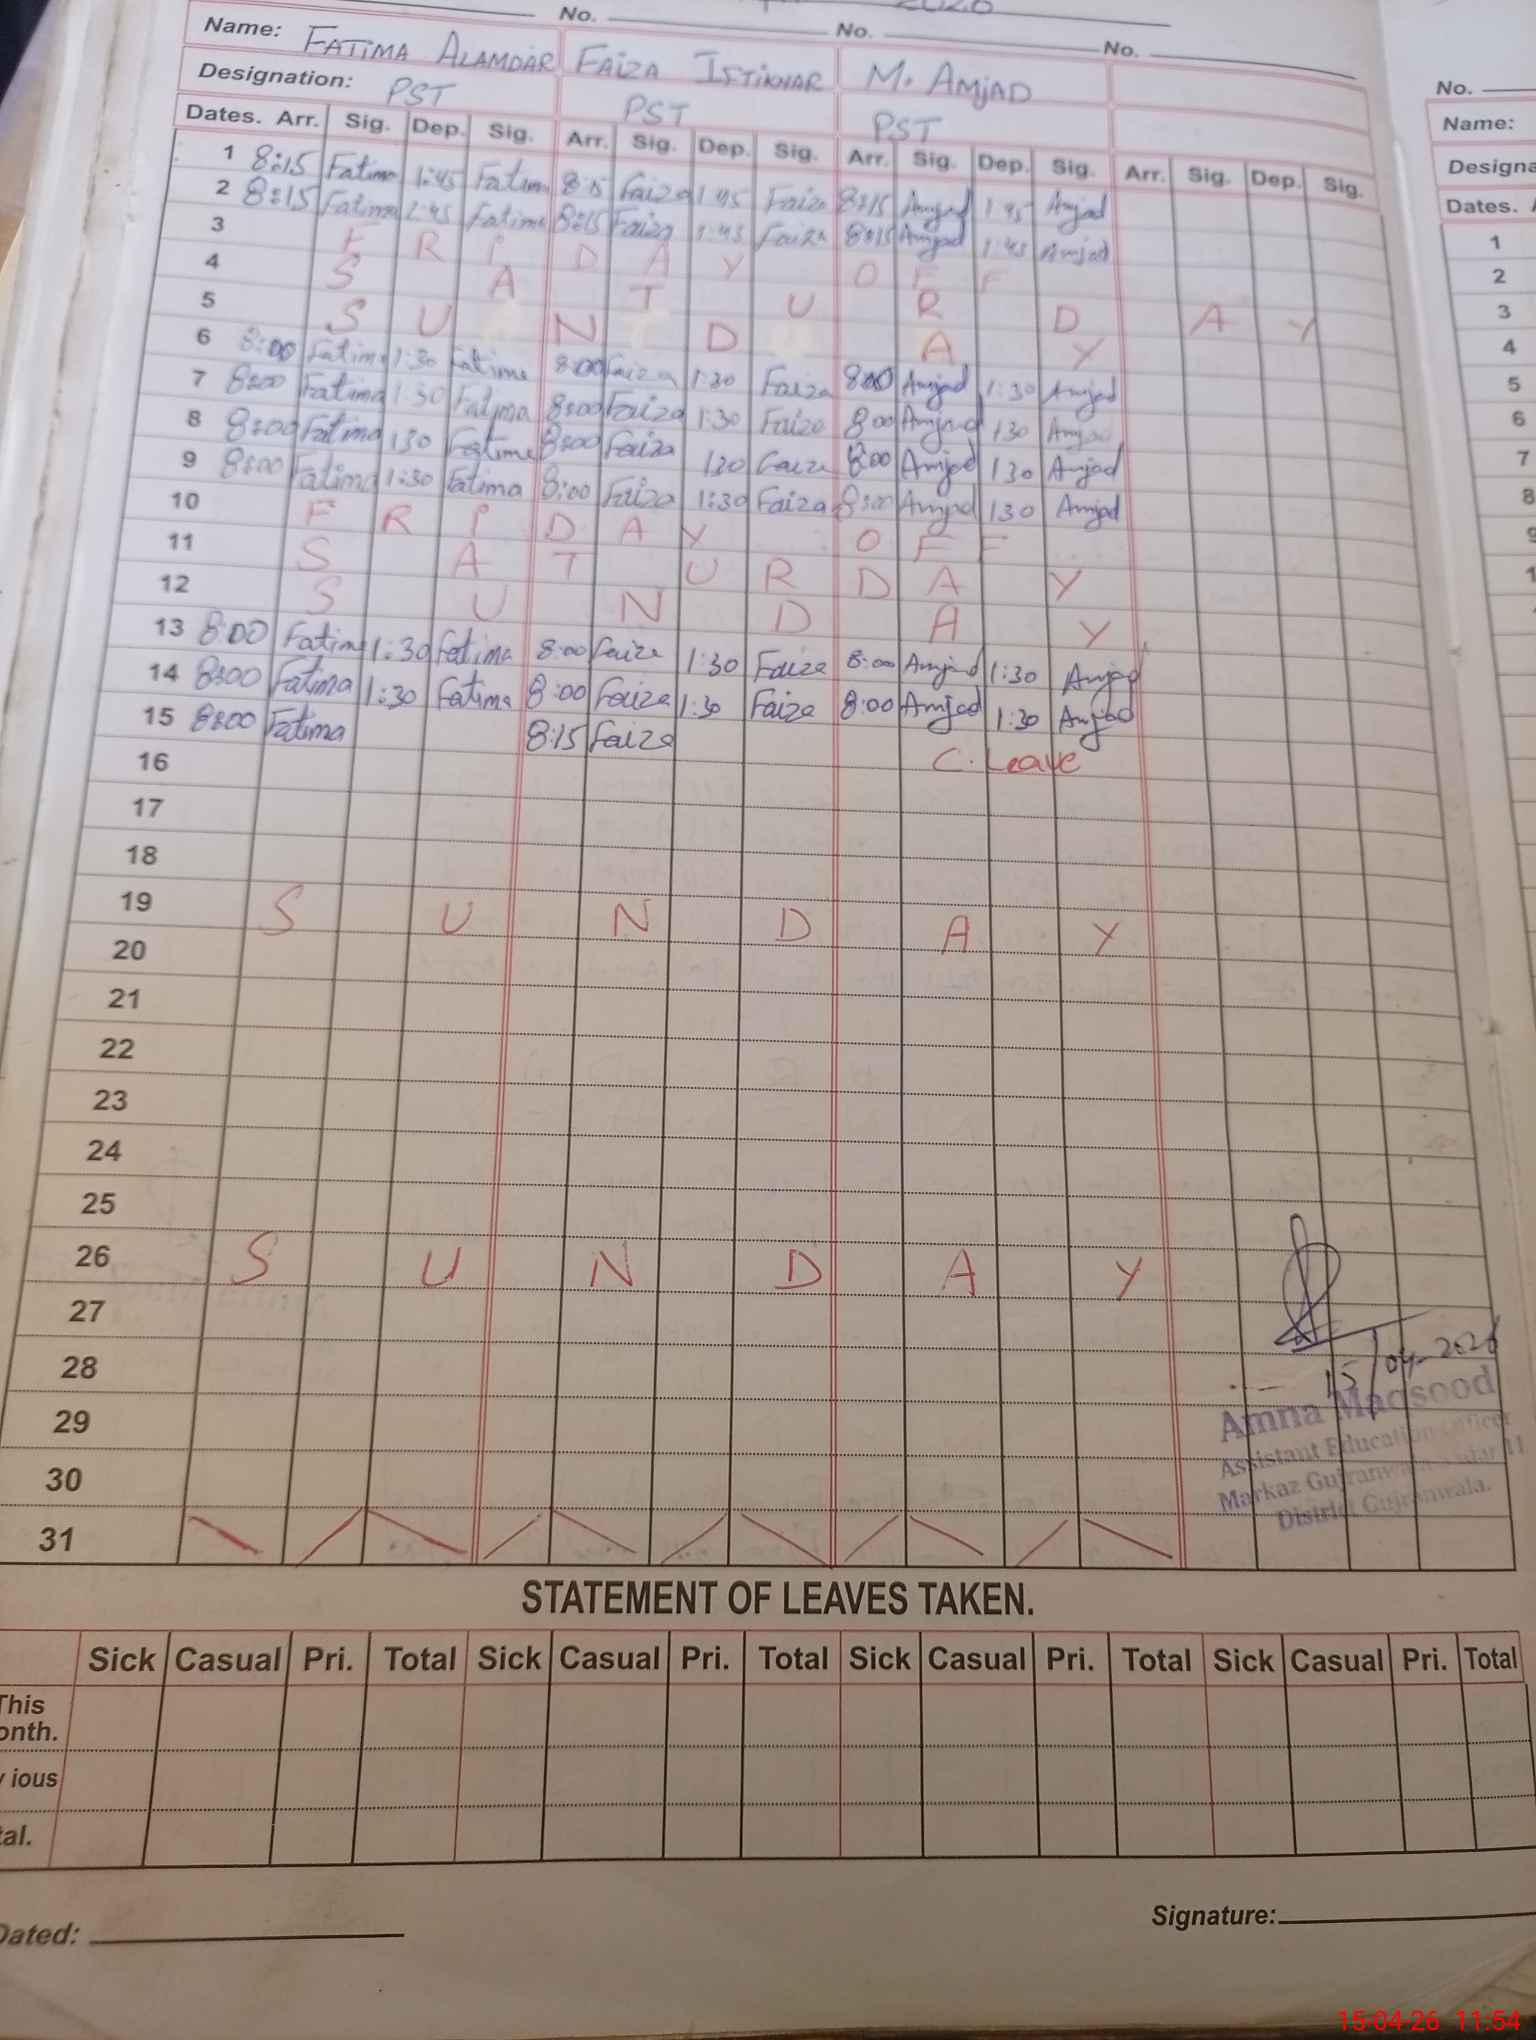 2026
No. No. No.
Name: FATIMA ALAMDAR FAIZA ISTIKHAR M. AMJAD
Designation: PST PST PST
Dates. Arr. Sig. Dep. Sig. Arr. Sig. Dep. Sig. Arr. Sig. Dep. Sig. Arr. Sig. Dep. Sig.
1 8:15 Fatima 1:45 Fatima 8:15 Faiza 1:45 Faiza 8:15 Amjad 1:45 Amjad
2 8:15 Fatima 1:45 Fatima 8:15 Faiza 1:45 Faiza 8:15 Amjad 1:45 Amjad
3 F R I D A Y O F F
4 S A T U R D A Y
5 S U N D A Y
6 8:00 Fatima 1:30 Fatima 8:00 Faiza 1:30 Faiza 8:00 Amjad 1:30 Amjad
7 8:00 Fatima 1:30 Fatima 8:00 Faiza 1:30 Faiza 8:00 Amjad 130 Amjad
8 8:00 Fatima 130 Fatima 8:00 Faiza 130 Faiza 8:00 Amjad 130 Amjad
9 8:00 Fatima 1:30 Fatima 8:00 Faiza 1:30 Faiza 8:00 Amjad 130 Amjad
10 F R I D A Y O F F
11 S A T U R D A Y
12 S U N D A Y
13 8:00 Fatima 1:30 Fatima 8:00 Faiza 1:30 Faiza 8:00 Amjad 1:30 Amjad
14 8:00 Fatima 1:30 Fatima 8:00 Faiza 1:30 Faiza 8:00 Amjad 1:30 Amjad
15 8:00 Fatima 8:15 Faiza C. Leave
16
17
18
19 S U N D A Y
20
21
22
23
24
25
26 S U N D A Y
27
28
29
30
31
15/04-2026
Amna Maqsood
Assistant Education Officer
Markaz Gujranwala
District Gujranwala.
STATEMENT OF LEAVES TAKEN.
Sick Casual Pri. Total Sick Casual Pri. Total Sick Casual Pri. Total Sick Casual Pri. Total
This
onth.
ious
tal.
Dated: Signature:
No.
Name:
Designa
Dates.
1
2
3
4
5
6
7
8
9
1
15-04-26 11:54